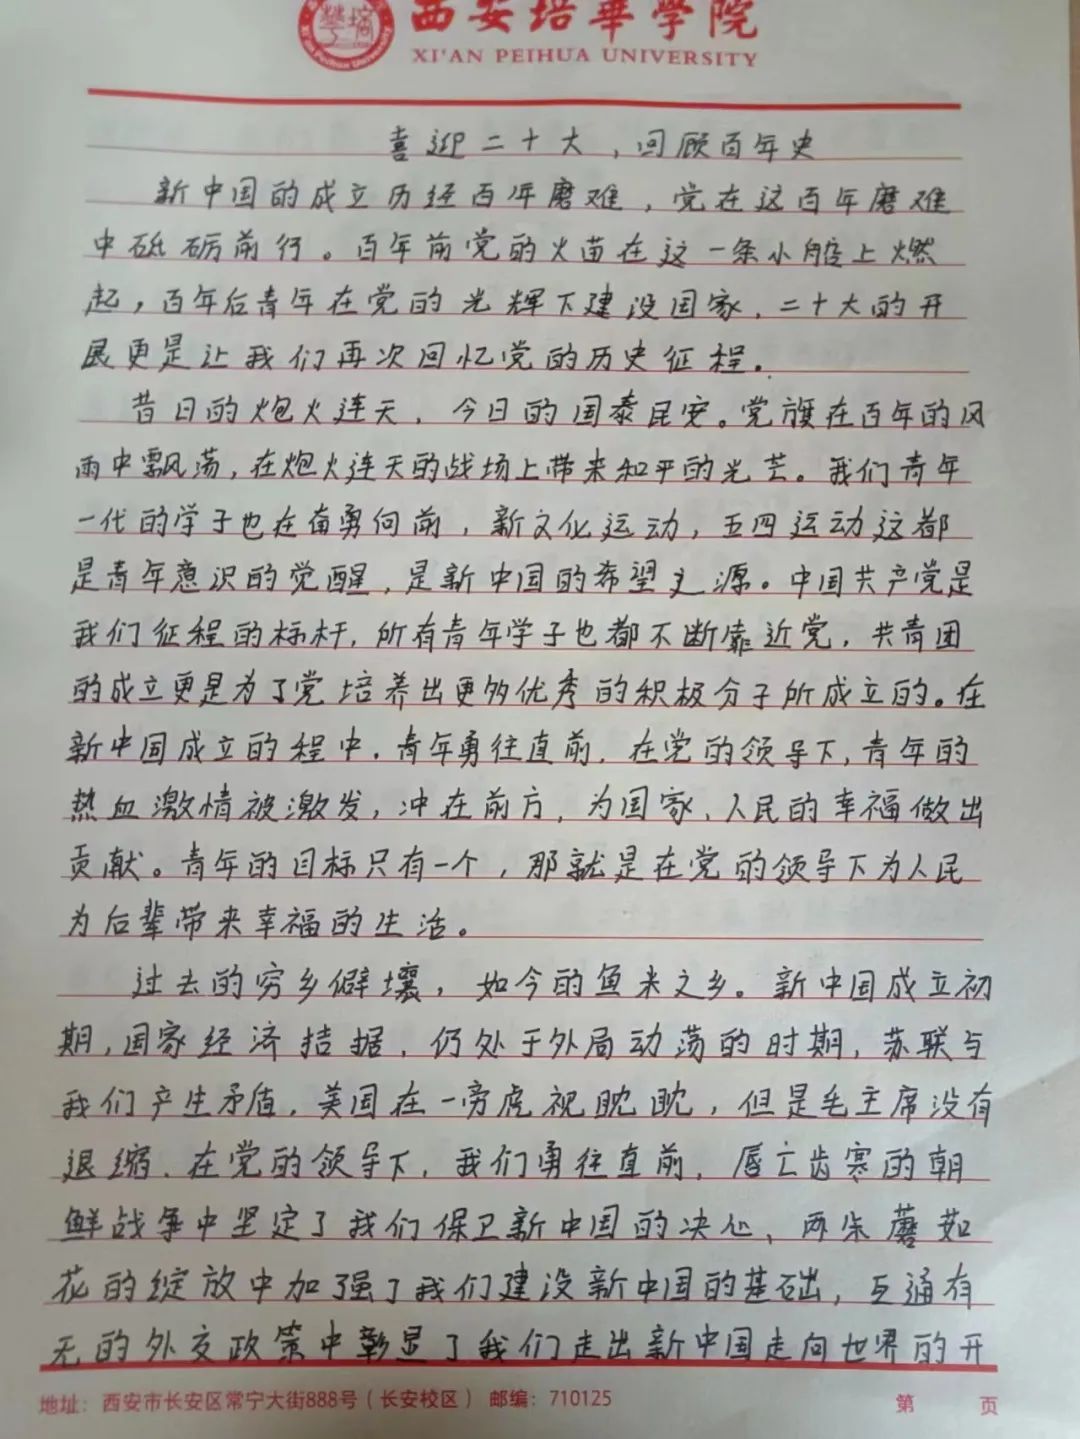 西安培華学院
XI'AN PEIHUA UNIVERSITY
喜迎二十大，回顾百年史
新中国的成立历经百年磨难，党在这百年磨难
中砥砺前行。百年前党的火苗在这一条小船上燃
起，百年后青年在党的光辉下建设国家，二十大的开
展更是让我们再次回忆党的历史征程。
昔日的炮火连天，今日的国泰民安。党旗在百年的风
雨中飘荡，在炮火连天的战场上带来和平的光芒。我们青年
一代的学子也在奋勇向前，新文化运动，五四运动这都
是青年意识的觉醒，是新中国的希望之源。中国共产党是
我们征程的标杆，所有青年学子也都不断靠近党，共青团
的成立更是为了党培养出更多优秀的积极分子所成立的。在
新中国成立的程中，青年勇往直前，在党的领导下，青年的
热血激情被激发，冲在前方，为国家、人民的幸福做出
贡献。青年的目标只有一个，那就是在党的领导下为人民
为后辈带来幸福的生活。
过去的穷乡僻壤，如今的鱼米之乡。新中国成立初
期，国家经济拮据，仍处于外局动荡的时期，苏联与
我们产生矛盾，美国在一旁虎视眈眈，但是毛主席没有
退缩、在党的领导下，我们勇往直前，唇亡齿寒的朝
鲜战争中坚定了我们保卫新中国的决心、两朵蘑菇
花的绽放中加强了我们建设新中国的基础，互通有
无的外交政策中彰显了我们走出新中国走向世界的开
地址：西安市长安区常宁大街888号（长安校区） 邮编：710125
第 页